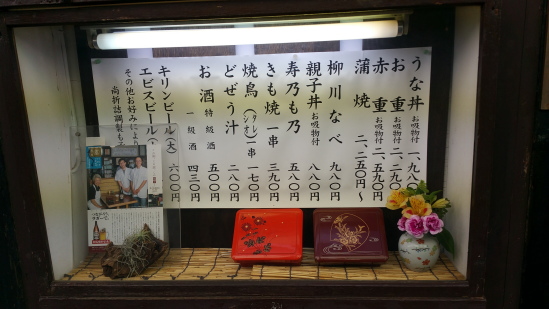 うな丼 お吸物付 一、九八
お重 お吸物付 二、二九〇
赤重 お吸物付 二、五九〇
蒲焼 二、二五〇〜
柳川なべ 九八〇
親子丼 お吸物付 八八〇
寿乃も乃 五八〇
きも焼 一串 三九〇
焼鳥(タレ シオ)一串 一七〇
どぜう汁 二八〇
お酒 特級酒 五〇〇
一級酒 四三〇
キリンビール(大) 六〇〇
エビスビール
その他お好みにより
尚折詰調製も